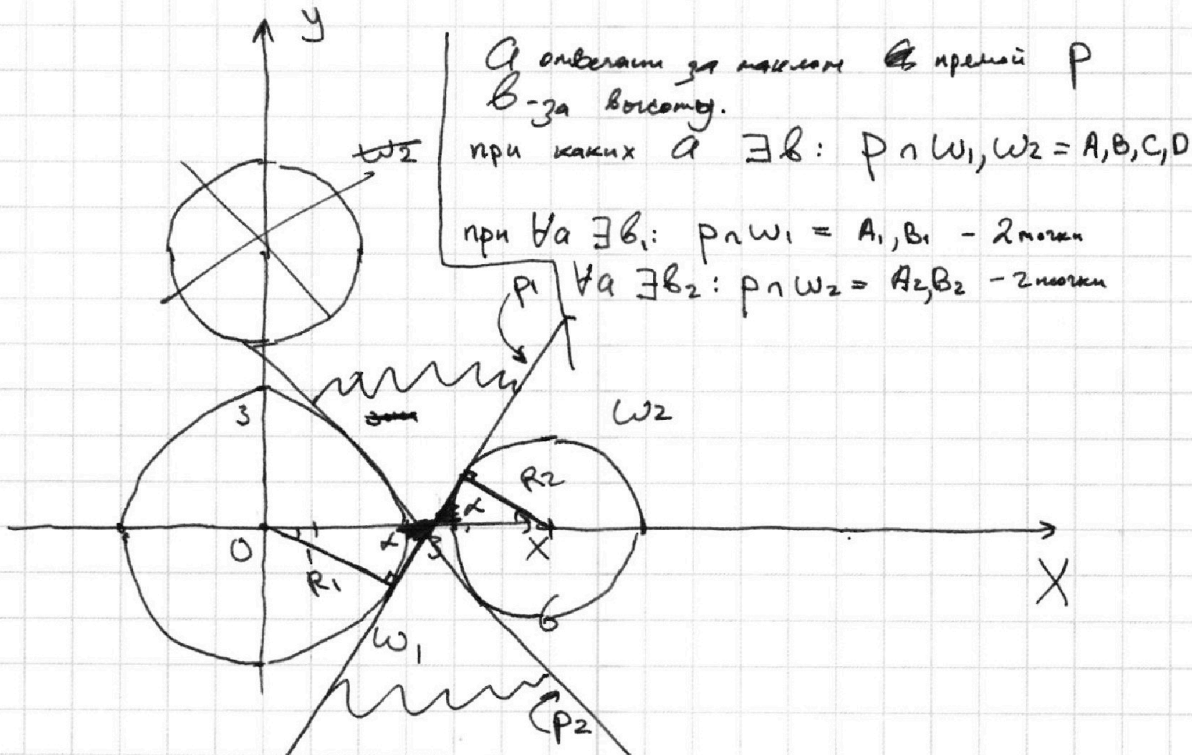 y
a отвечает за наклон прямой p
b - за высоту.
при каких a ∃b: p∩ω1, ω2 = A, B, C, D
ω2
при ∀a ∃b1: p∩ω1 = A1, B1 - 2 точки
∀a ∃b2: p∩ω2 = A2, B2 - 2 точки
p1
3
ω2
R2
α
0
R1
α
3
X
6
X
ω1
p2